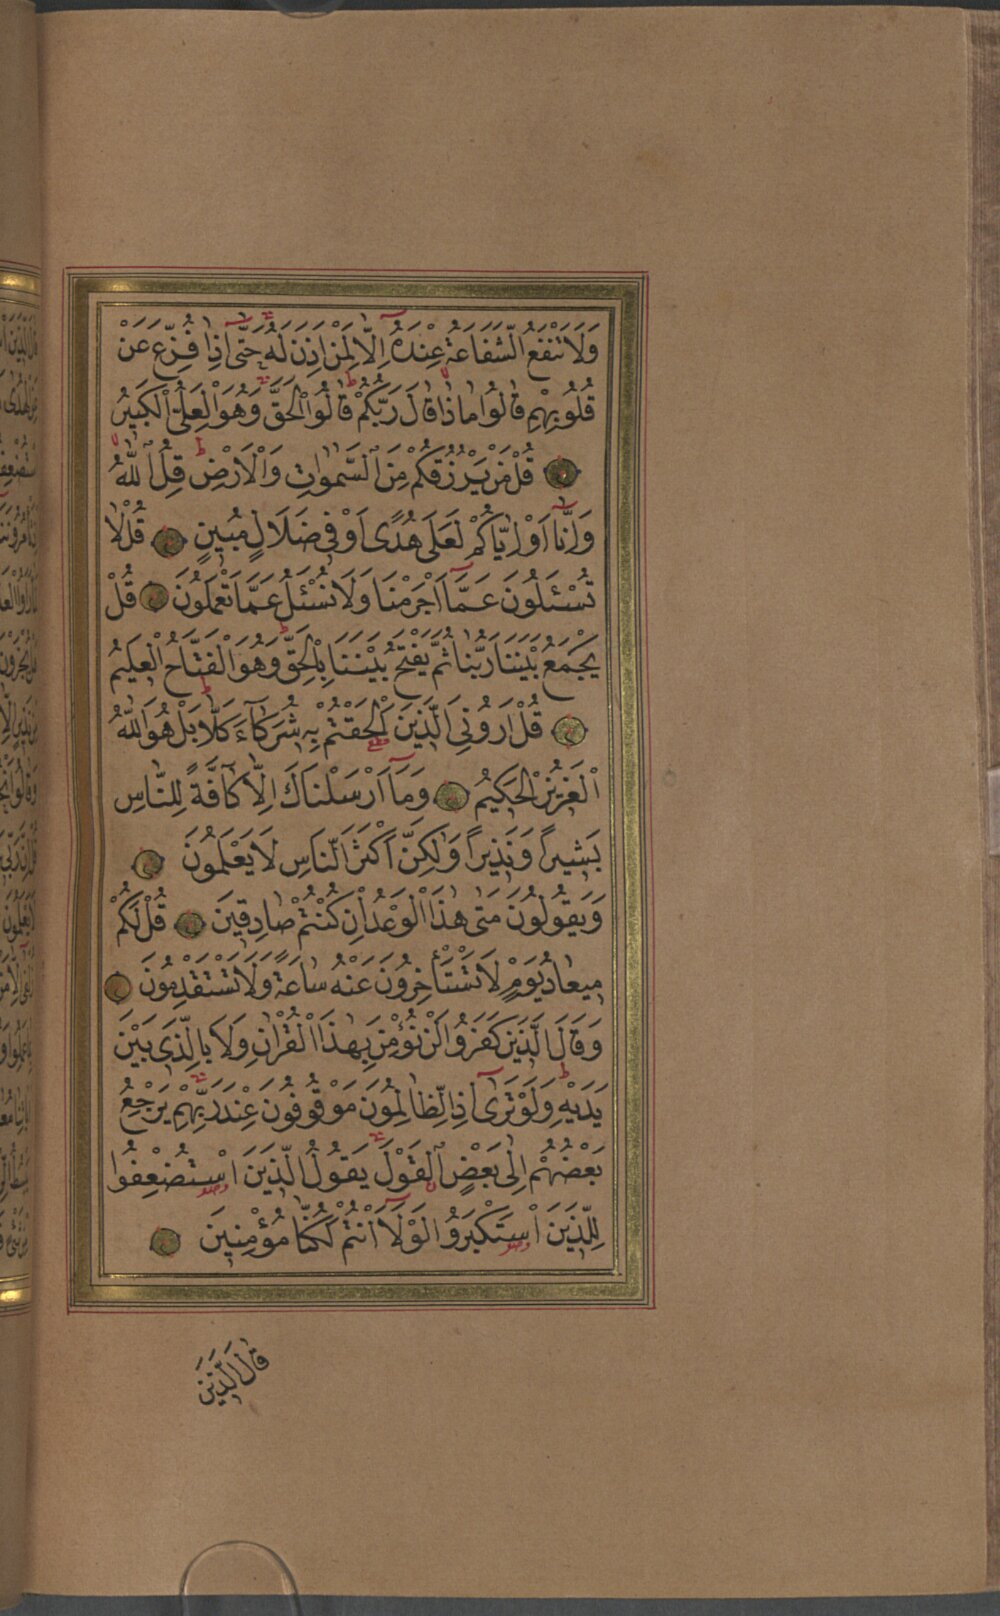 وَلَا تَنْفَعُ الشَّفَاعَةُ عِنْدَهُ اِلَّا لِمَنْ اَذِنَ لَهُ حَتّٰى اِذَا فُزِّعَ عَنْ
قُلُوبِهِمْ قَالُوا مَاذَا قَالَ رَبُّكُمْ قَالُوا الْحَقَّ وَهُوَ الْعَلِىُّ الْكَبِيرُ
قُلْ مَنْ يَرْزُقُكُمْ مِنَ السَّمٰوَاتِ وَالْاَرْضِ قُلِ اللّٰهُ
وَاِنَّا اَوْ اِيَّاكُمْ لَعَلٰى هُدًى اَوْ فِى ضَلَالٍ مُبِينٍ قُلْ لَا
تُسْـَٔلُونَ عَمَّا اَجْرَمْنَا وَلَا نُسْـَٔلُ عَمَّا تَعْمَلُونَ قُلْ
يَجْمَعُ بَيْنَنَا رَبُّنَا ثُمَّ يَفْتَحُ بَيْنَنَا بِالْحَقِّ وَهُوَ الْفَتَّاحُ الْعَلِيمُ
قُلْ اَرُونِىَ الَّذِينَ اَلْحَقْتُمْ بِهِ شُرَكَآءَ كَلَّا بَلْ هُوَ اللّٰهُ
الْعَزِيزُ الْحَكِيمُ وَمَآ اَرْسَلْنَاكَ اِلَّا كَآفَّةً لِلنَّاسِ
بَشِيرًا وَنَذِيرًا وَلٰكِنَّ اَكْثَرَ النَّاسِ لَا يَعْلَمُونَ
وَيَقُولُونَ مَتٰى هٰذَا الْوَعْدُ اِنْ كُنْتُمْ صَادِقِينَ قُلْ لَكُمْ
مِيعَادُ يَوْمٍ لَا تَسْتَأْخِرُونَ عَنْهُ سَاعَةً وَلَا تَسْتَقْدِمُونَ
وَقَالَ الَّذِينَ كَفَرُوا لَنْ نُؤْمِنَ بِهٰذَا الْقُرْاٰنِ وَلَا بِالَّذِى بَيْنَ
يَدَيْهِ وَلَوْ تَرٰى اِذِ الظَّالِمُونَ مَوْقُوفُونَ عِنْدَ رَبِّهِمْ يَرْجِعُ
بَعْضُهُمْ اِلٰى بَعْضٍ الْقَوْلَ يَقُولُ الَّذِينَ اسْتُضْعِفُوا
لِلَّذِينَ اسْتَكْبَرُوا لَوْلَا اَنْتُمْ لَكُنَّا مُؤْمِنِينَ
قَالَ الَّذِينَ